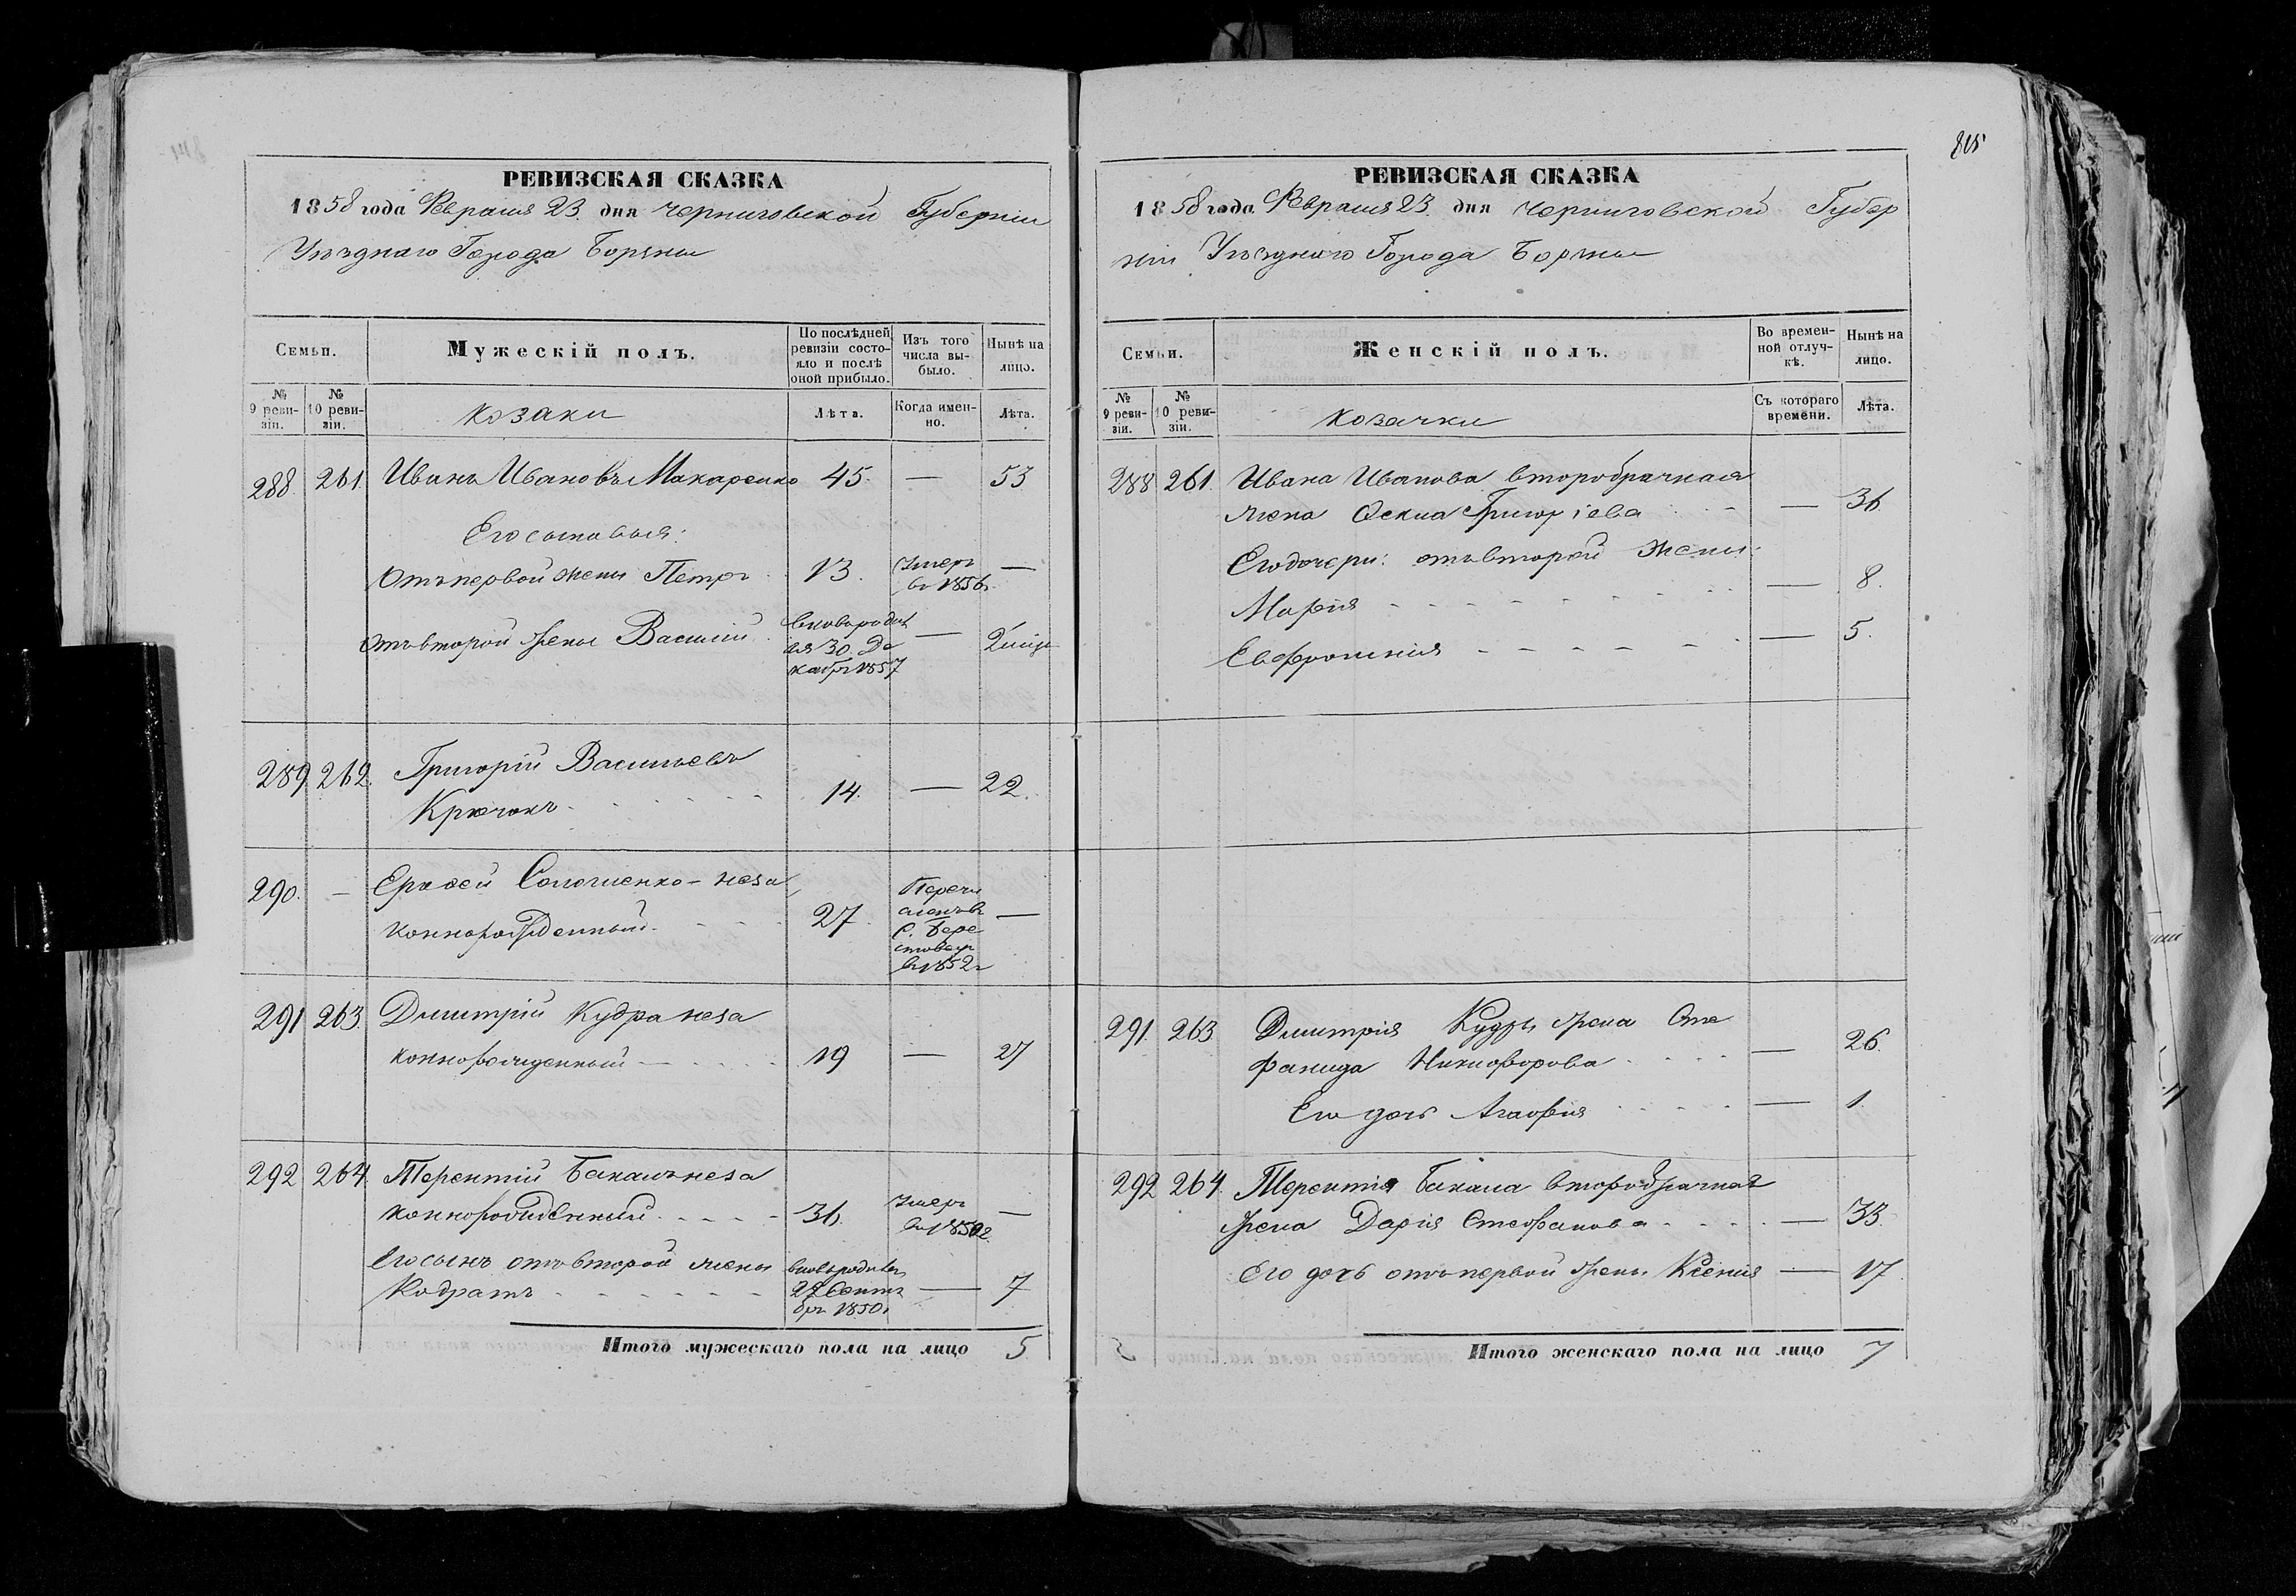 815
РЕВИЗСКАЯ СКАЗКА
1858 года Февраля 23 дня Черниговской Губернии
Уезднаго Города Борзны
Семьи.
Мужескій полъ.
По послѣдней ревизіи состояло и послѣ оной прибыло.
Изъ того числа выбыло.
Нынѣ на лицо.
№ 9 ревизіи.
№ 10 ревизіи.
козаки
Лѣта.
Когда именно.
Лѣта.
288. 261. Иванъ Ивановъ Макаренко 45. — 53
Его сыновья:
Отъ первой жены Петръ 13. Умеръ —
въ 1856г
Отъ второй жены Василій вновь родил — 2 мѣся
ся 30. Де
кабря 1857
289 262. Григорій Васильевъ
Крючокъ 14. — 22.
290. — Ерофей незаконнорожденный 27
Перечи
сленъ въ
С. Бере
стовец —
въ 1852г
291 263. Димитрій Кудра неза
коннорожденный 19 — 27
292 264. Терентій Бакалъ неза
коннорожденный 36. Умеръ —
въ 1852г.
Его сынъ отъ второй жены вновь родился
Кодратъ 27 Сентя — 7
бря 1850г
Итого мужескаго пола на лицо 5
РЕВИЗСКАЯ СКАЗКА
1858 года Февраля 23 дня Черниговской Губер
ніи Уезднаго Города Борзны
Семьи.
Женскій полъ.
Во временной отлучкѣ.
Нынѣ на лицо.
№ 9 ревизіи.
№ 10 ревизіи.
козачки
Съ котораго времени.
Лѣта.
288 261. Ивана Иванова второбрачная
жена Григоріева — 36
Его дочери: отъ второй жены:
Марія — 8.
Евфросинія — 5.
291. 263 Димитрія Кудры жена Сте
фанида Никифорова — 26.
Его дочь Агафія — 1.
292 264. Терентія Бакала второбрачная
жена Дарія Стефанова — 33.
Его дочь отъ первой жены Ксенія — 17.
Итого женскаго пола на лицо 7